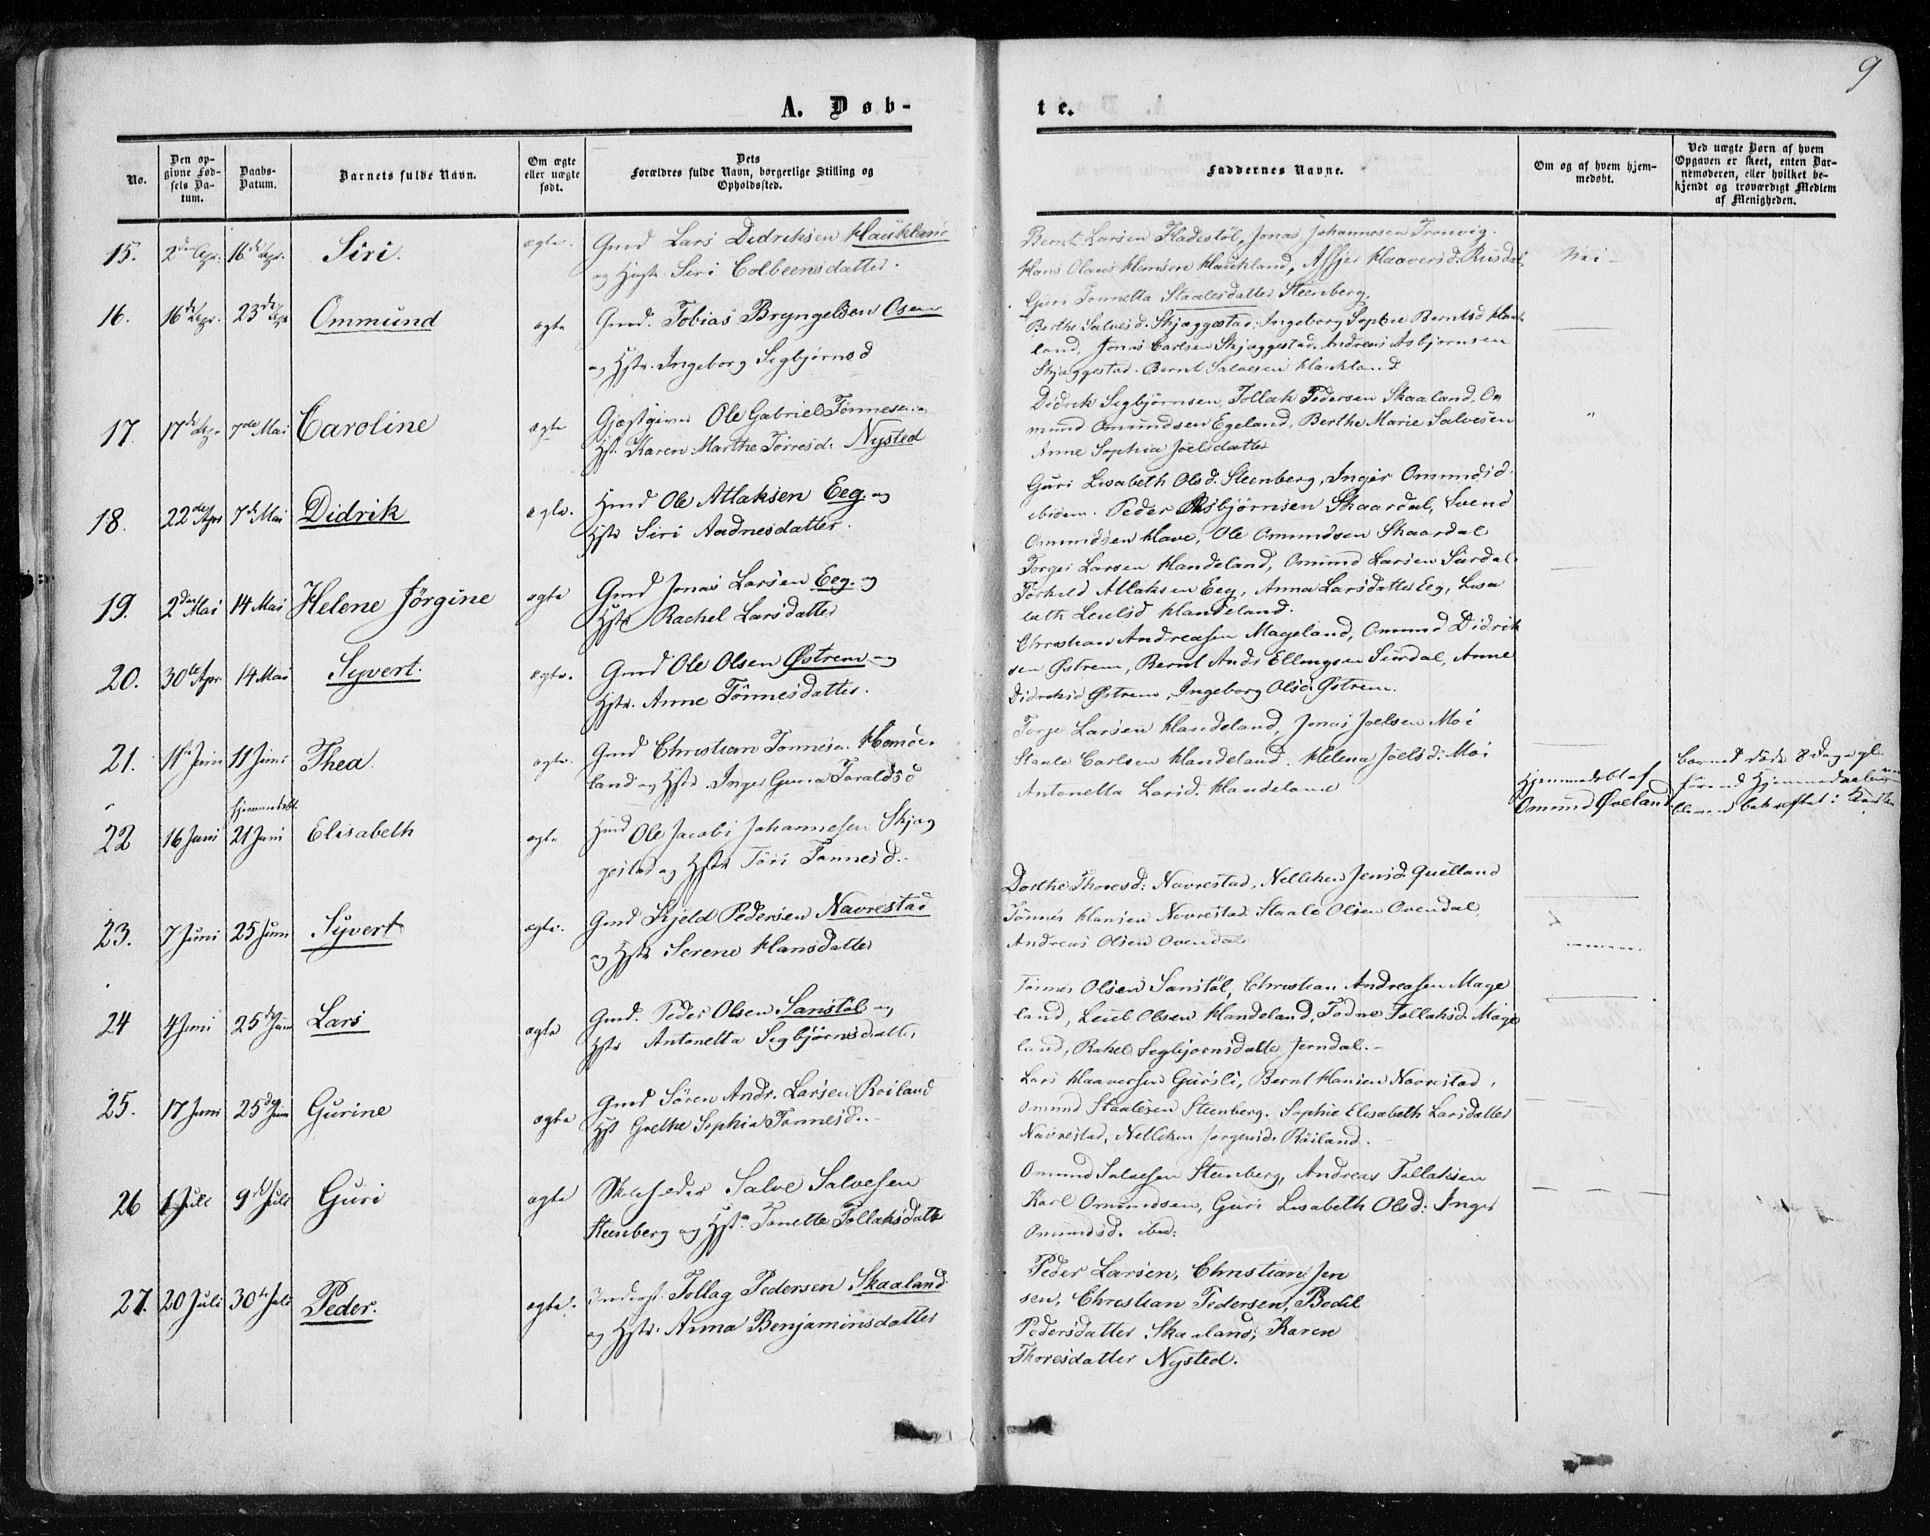 9
A. Døb-
te.
No.
Den op-
givne Fød-
sels Da-
tum.
Daabs-
Datum.
Barnets fulde Navn.
Om ægte
eller uægte
født.
Dets
Forældres fulde Navn, borgerlige Stilling og
Opholdssted.
Faddernes Navne.
Om og af hvem hjem-
medøbt.
Ved uægte Børn af hvem
Opgaven er skeet, enten Bar-
nemoderen, eller hvilket be-
kjendt og troværdigt Medlem
af Menigheden.
15. 2den Apr. 16de Apr. Siri. ægte. Gmd Lars Didriksen Haukland
og Hustr Siri Colbeensdatter.
Bernt Larsen Fladestøl, Jonas Johannesen Tronvig.
Hans Olaus Hansen Haukland, Assjer Haaversd. Rusdal,
Guri Tonnetta Staalesdatter Steenberg.
Nei
16. 16de Apr. 23de Apr Ommund ægte Gmd. Tobias Bryngelsen Osen
og Hstr. Ingeborg Segbjørnsd
Berthe Salvesd. Skjæggestad. Ingeborg Sophie Berntsd Hauk-
land. Jonas Carlsen Skjæggestad. Andreas Asbjørnsen
Skjæggestad. Bernt Salvesen Haukland
17. 17de Apr. 7de Mai Caroline ægte Gjæstgiver Ole Gabriel Tønnesen og
Hst. Karen Marthe Torresd. Nysted
Didrik Segbjørnsen, Tollak Pedersen Skaaland, Om
mund Omundsen Egeland, Berthe Marie Salvesen
Anne Sophia Joelsdatter
"
18. 22de Apr 7de Mai Didrik ægte. Hmd Ole Atlaksen Eeg. og
Hstr Siri Aadnesdatter.
Guri Lisabeth Olsd. Steenberg, Inger Ommundsd.
ibidem. Peder Asbjørnsen Skaardal, Svend
Ommundsen Have, Ole Ommundsen Skaardal
19. 2den Mai 14 Mai Helene Jörgine ægte Gmd Jonas Larsen Eeg. og
Hstr Rachel Larsdatter
Torger Larsen Handeland, Omund Larsen Surdal.
Torkild Atlaksen Eeg, Anna Larsdatter Eeg, Lisa
beth Leulsd Handeland.
20. 30te Apr 14 Mai Syvert. ægte. Gmd Ole Olsen Østrem og
Hstr. Anne Tønnesdatter.
Christian Andreasen Mageland, Omund Didrik
sen Østrem, Bernt Ands Ellingsen Surdal, Anne
Didriksd Østrem, Ingeborg Olsd. Østrem.
21. 11te Juni 11 Juni Thea. ægte. Gmd Christian Tonnesen Homøe-
land og Hstr. Inger Guria Taraldsd
Torge Larsen Handeland, Jonas Joelsen Moi
Staale Carlsen Handeland. Helena Joelsd: Moi
Antonetta Larsd. Handeland
22 16 Juni Hjemmedøbt 21 Juni Elisabeth ægte Hmd Ole Jacobs Johannesen Skjæg
gestad og Hstr Tori Tønnesd.
Hjemmedøbt af
Omund Øveland
barnet døde 8 dage gl.
førend Hjemmedaaben
blev bekræftet i Kirken
23. 7 Juni 25 Juni Syvert ægte. Gmd Kjeld Pedersen Navrestad
og Hstr Serene Hansdatter
Dorthe Thoresd: Navrestad, Nelliken Jensd. Quelland
Tønnes Hansen Navrestad. Staale Olsen Ovendal,
Andreas Olsen Ovendal
24 4 Juni 25de Juni Lars ægte Gmd. Peder Olsen Sanstøl og
Hstr Antonetta Segbjörnsdatter
Tønnes Olsen Sanstøl, Christian Andreasen Mage
land, Leul Olsen Handeland, Todne Tollaksd. Mage
land, Rakel Segbjørnsdatter Jerndal.
25. 17 Juni 25de Juni Gurine ægte Gmd Søren Andr. Larsen Roiland
Hst Grethe Sophia Tønnesd.
Lars Haaversen Gursli, Bernt Hansen Navrestad,
Omund Staalesen Steenberg. Sophie Elisabeth Larsdatter
Navrestad, Nelliken Jørgensd. Röiland.
26 1 Juli 9de Juli Guri ægte Skoleholder Salve Salvesen
Steenberg og Hstr. Tonette Tollaksdatt
Omund Salvesen Steenberg, Andreas Tollaksen
Karl Omundsen, Guri Lisabeth Olsd: Inger
Omundsd. ibid:
27. 20 Juli 30te Juli Peder. ægte. Inderst. Tollag Pedersen Skaaland.
og Hstr. Anna Benjaminsdatter
Peder Larsen, Christian Jen
sen, Christian Pedersen, Bodil
Pedersdatter Skaaland, Karen
Thoresdatter Nysted.